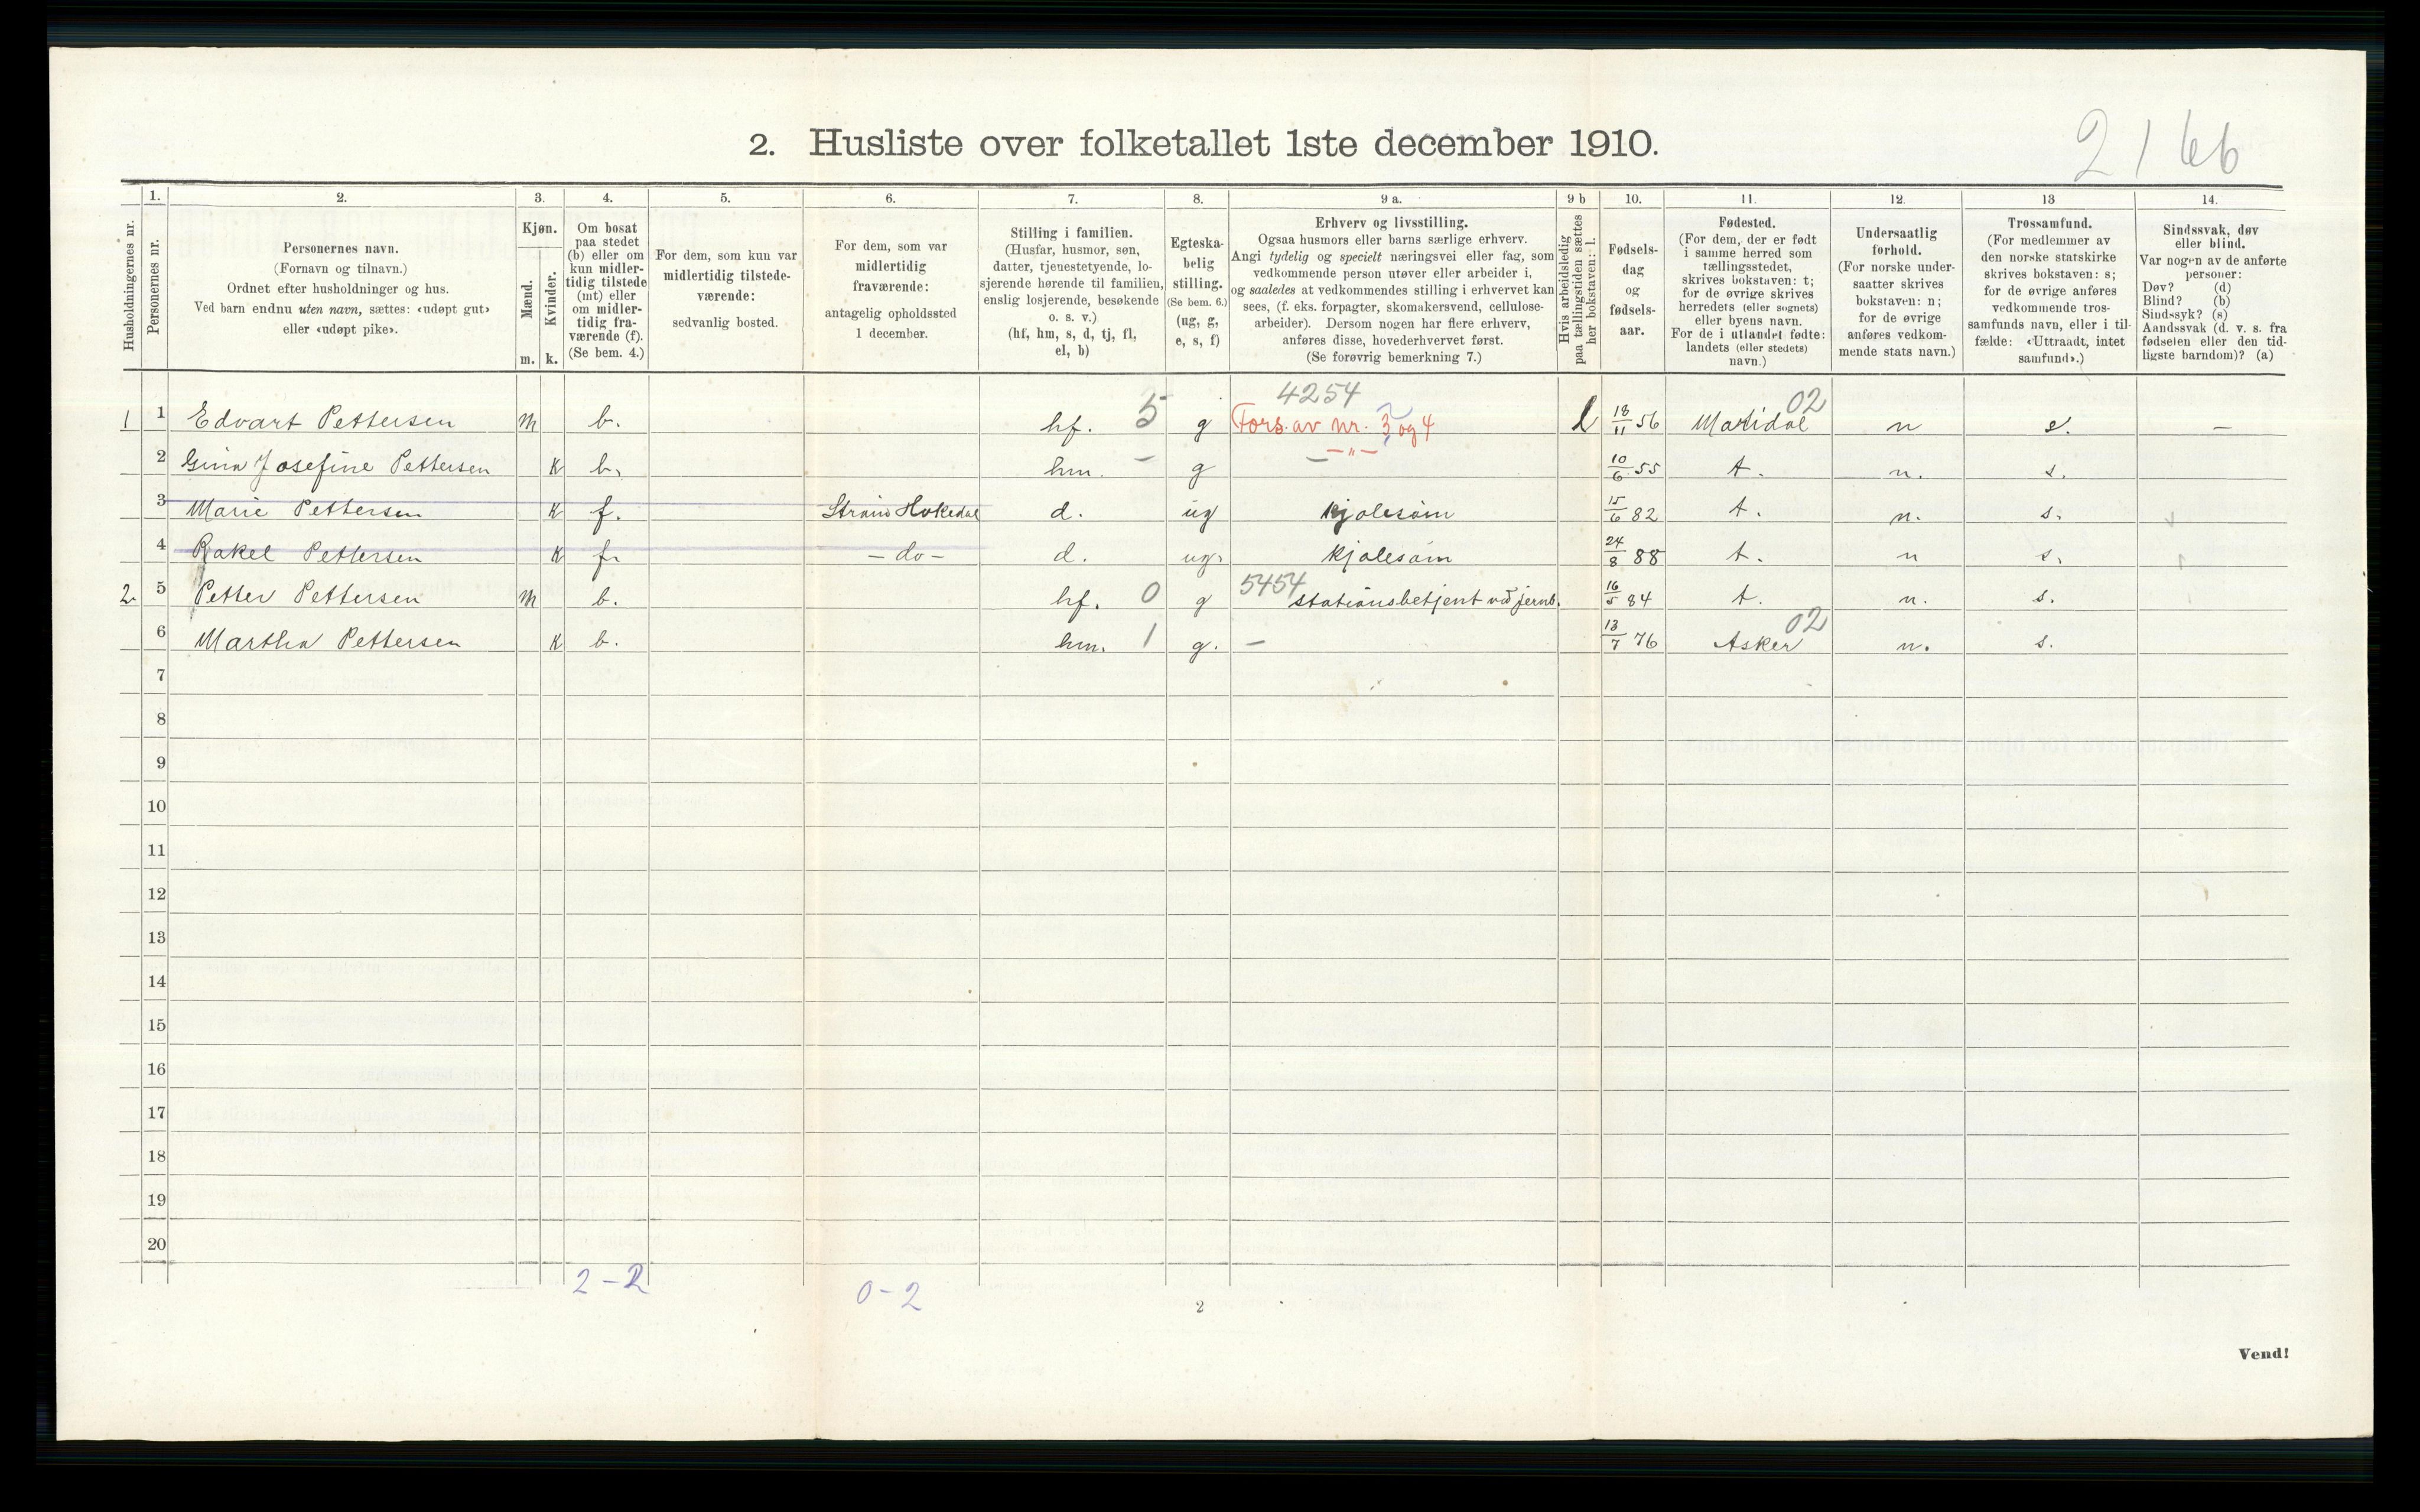 2166
2. Husliste over folketallet 1ste december 1910.
Husholdningernes nr.
1. Personernes nr.
2. Personernes navn. (Fornavn og tilnavn.) Ordnet efter husholdninger og hus. Ved barn endnu uten navn, sættes: «udøpt gut» eller «udøpt pike».
3. Kjøn. Mænd. m. Kvinder. k.
4. Om bosat paa stedet (b) eller om kun midlertidig tilstede (mt) eller om midlertidig fraværende (f). (Se bem. 4.)
5. For dem, som kun var midlertidig tilstedeværende: sedvanlig bosted.
6. For dem, som var midlertidig fraværende: antagelig opholdssted 1 december.
7. Stilling i familien. (Husfar, husmor, søn, datter, tjenestetyende, losjerende hørende til familien, enslig losjerende, besøkende o. s. v.) (hf, hm, s, d, tj, fl, el, b)
8. Egteskabelig stilling. (Se bem. 6.) (ug, g, e, s, f)
9 a. Erhverv og livsstilling. Ogsaa husmors eller barns særlige erhverv. Angi tydelig og specielt næringsvei eller fag, som vedkommende person utøver eller arbeider i, og saaledes at vedkommendes stilling i erhvervet kan sees, (f. eks. forpagter, skomakersvend, cellulosearbeider). Dersom nogen har flere erhverv, anføres disse, hovederhvervet først. (Se forøvrig bemerkning 7.)
9 b Hvis arbeidsledig paa tællingstiden sættes her bokstaven: l.
10. Fødselsdag og fødselsaar.
11. Fødested. (For dem, der er født i samme herred som tællingsstedet, skrives bokstaven: t; for de øvrige skrives herredets (eller sognets) eller byens navn. For de i utlandet fødte: landets (eller stedets) navn.)
12. Undersaatlig forhold. (For norske undersaatter skrives bokstaven: n; for de øvrige anføres vedkommende stats navn.)
13 Trossamfund. (For medlemmer av den norske statskirke skrives bokstaven: s; for de øvrige anføres vedkommende trossamfunds navn, eller i tilfælde: «Uttraadt, intet samfund».)
14. Sindssvak, døv eller blind. Var nogen av de anførte personer: Døv? (d) Blind? (b) Sindssyk? (s) Aandssvak (d. v. s. fra fødselen eller den tidligste barndom)? (a)
4254 02
1 1 Edvart Pettersen m b. hf. 5 g Fors. av nr. 3 og 4 l 18/11 56 Maridal n s. —
2 Gina Josefine Pettersen k b. hm. - g — -"- 10/6 55 t. n. s.
3 Marie Pettersen k f. d. ug kjolesöm 15/6 82 t. n. s.
4 Rakel Pettersen k f. - do - d. ug. kjolesöm 24/8 88 t. n s.
2. 5 Petter Pettersen m b. hf. 0 g 5454 stationsbetjent ved jernb. 16/5 84 t. n. s.
6 Martha Pettersen k b. hm. 1 g. - 13/7 76 Asker 02 n. s.
7
8
9
10
11
12
13
14
15
16
17
18
19
20
2 - 2
0 - 2
2
Vend!